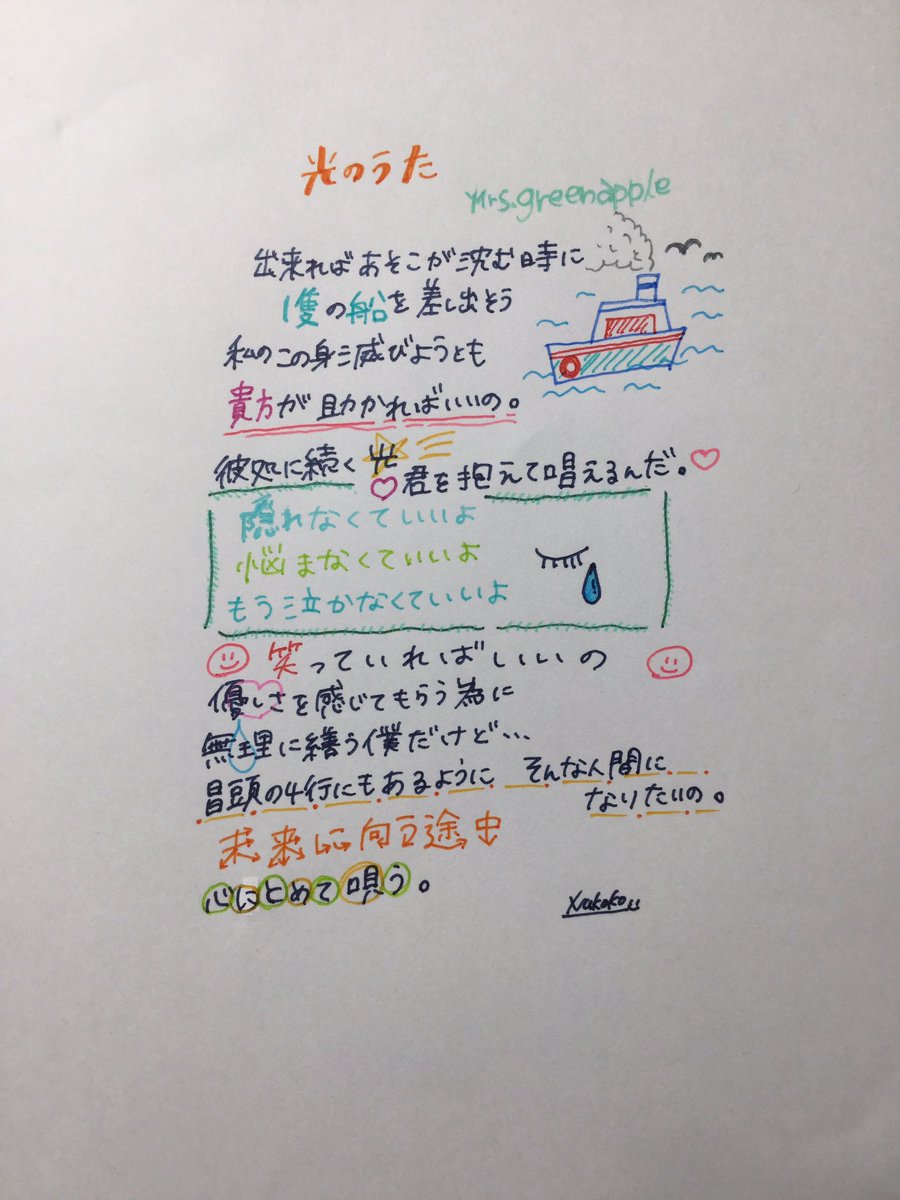 光のうた
Mrs.greenapple
出来ればあそこが沈む時に
1隻の船を差し出そう
私のこの身滅びようとも
貴方が助かればいいの。
彼処に続く光
君を抱えて唱えるんだ。
隠れなくていいよ
悩まなくていいよ
もう泣かなくていいよ
笑っていればいいの
優しさを感じてもらう為に
無理に繕う僕だけど…
冒頭の4行にもあるように そんな人間に
なりたいの。
未来に向う途中
心にとめて唄う。